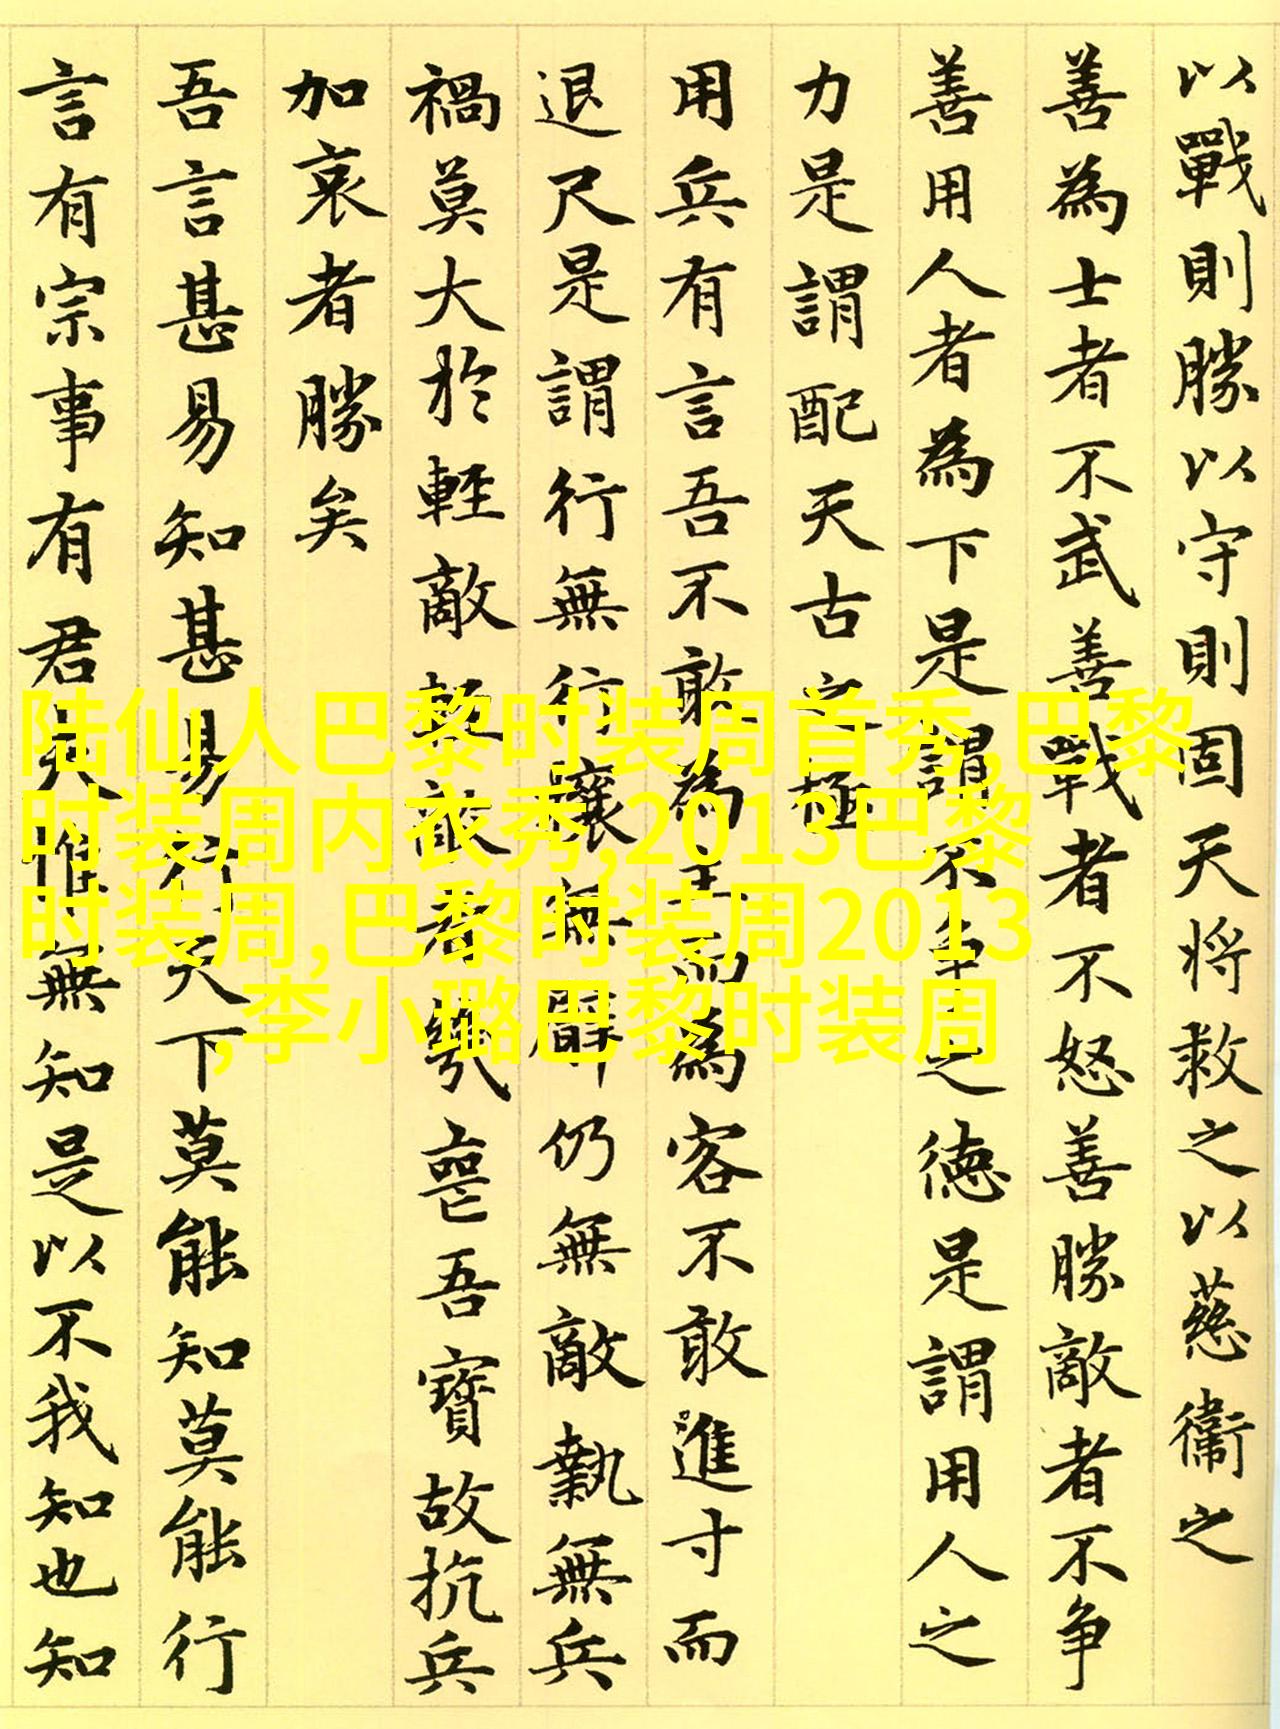 以戰則勝以守則固天将救之以慈衞之
善為士者不武善戰者不怒善勝敵者不争
善用人者為下是謂不争之德是謂用人之
力是謂配天古之極
用兵有言吾不敢為主而為客不敢進寸而
退尺是謂行無行攘無臂仍無敵執無兵
禍莫大於輕敵輕敵者幾喪吾寶故抗兵
加哀者勝矣
吾言甚易知甚易行天下莫能知莫能行
言有宗事有君夫惟無知是以不我知也知
陆仙人巴黎时装周首秀,巴黎
时装周内衣秀,2013巴黎
时装周,巴黎时装周2013
,李小璐巴黎时装周